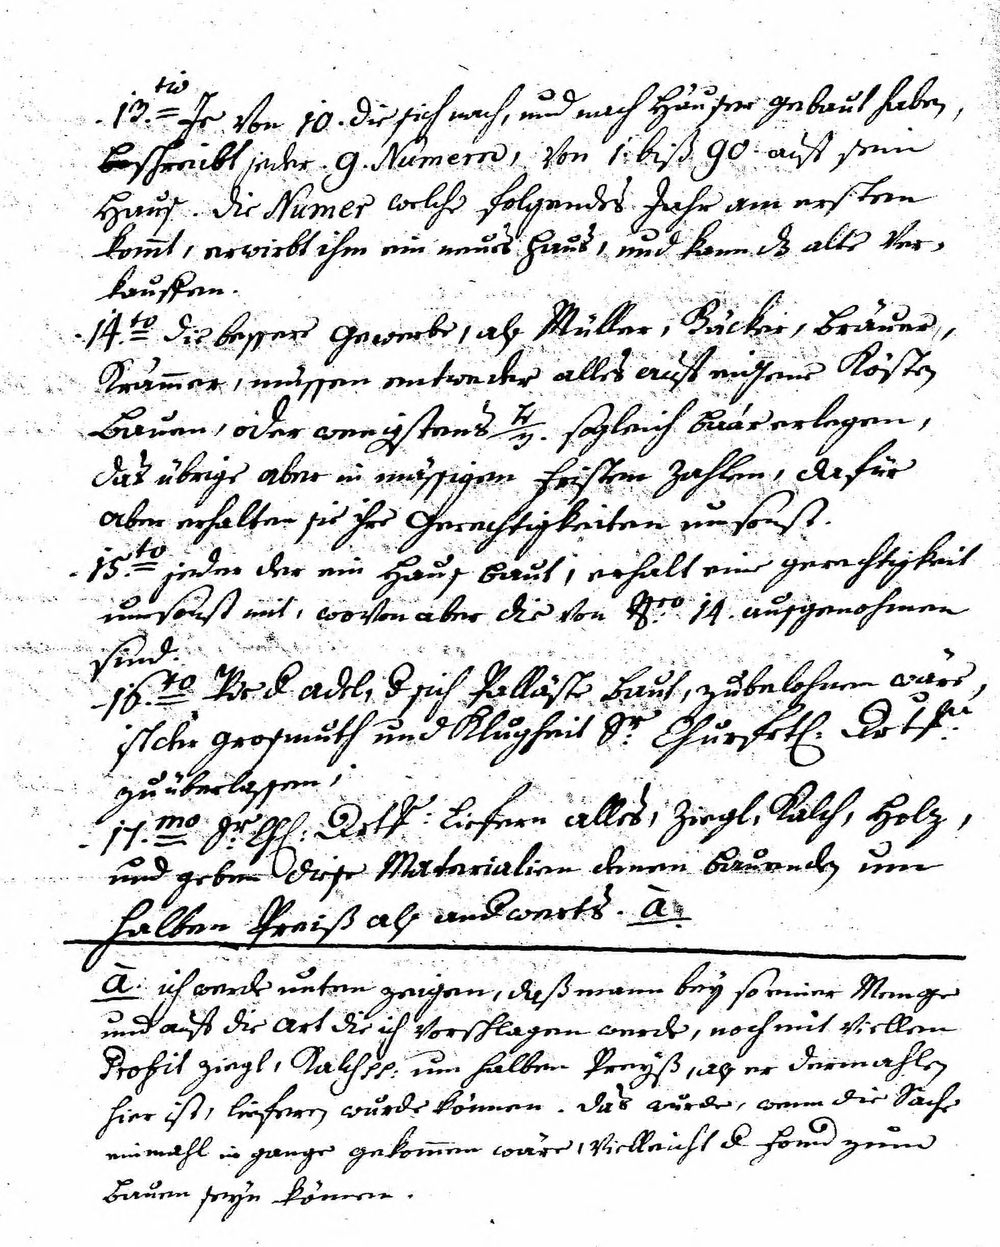 13.tio Je von 10. die sich nach, und nach Häuser gebaut haben,
beschreibt jeder 9. Numern, von 1. biß 90. auf sein
Hauß. die Numer welche folgendes Jahr am ersten
komt, erwirbt ihm ein neues Haus, und kann das alte ver-
kauffen.
14.to die bessere Gewerbe, als Müller, Bäcker, Bräuer,
Krämmer, müssen entweder alles auf eigene Kösten
bauen, oder wenigstens sogleich baar erlegen,
das übrige aber in mässigen Fristen zahlen, dafür
aber erhalten sie ihre Gerechtigkeiten umsonst.
15.to jeder der ein Hauß baut, erhalt eine gerechtigkeit
umsonst mit, wovon aber die von Nro 14. ausgenohmen
sind.
16.to Wie d adel, d sich Palläste baut, zubelohnen wäre,
ist der grosmuth und Klugheit Sr. Churfrtl:
zu überlassen;
17.mo Sr. liefern alles, Ziegl, Kalch, Holz,
und geben diese Materialien denen bauenden um
halben Preiß als anderwerts. à.
à. ich werde unten zeigen, daß mann bey so einer Menge
und auf die Art die ich vorschlagen werde, noch mit viellem
Profit ziegl, Kalch pp: um halben Preyß, als er dermahlen
hier ist, lieferen wurde können. das wurde, wenn die Sache
einmahl in gange gekommen wäre, vielleicht d Fond zum
bauen seyn können.